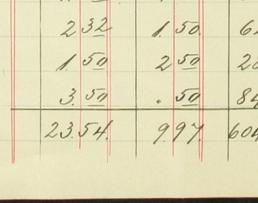 2 32 1.50. 62
1.50 2 50 20
3.50 .50 84
23.54. 9.97. 604